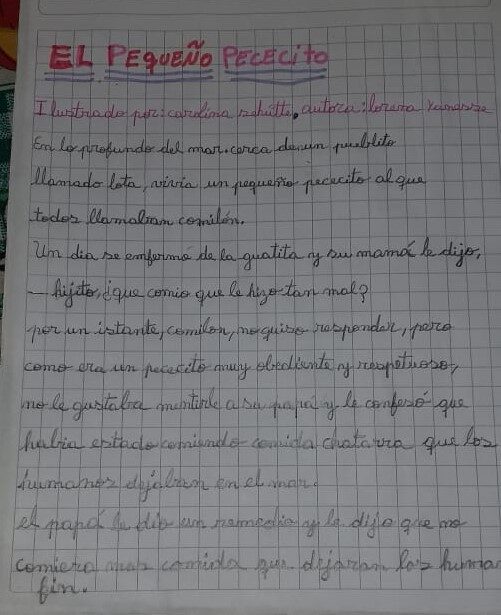 EL PEQUEÑO PECECITO
Ilustrado por: carolina schutti, autora: lorena
En lo profundo del mar. cerca de un pueblito
llamado lota, vivia un pequeño pececito al que
todos llamaban comilón.
Un dia se enfermó de la guatita y su mamá le dijo,
— hijito, ¿que comio que le hizo tan mal?
por un istante, comilon, no quiso responder, pero
como era un pececito muy obediente y respetuoso,
no le gustaba mentirle a su papá y le confesó que
habia estado comiendo comida chatarra que los
humanos dejaban en el mar.
el papá le dio un remedio y le dijo que no
comiera mas comida que dejaran los huma
fin.